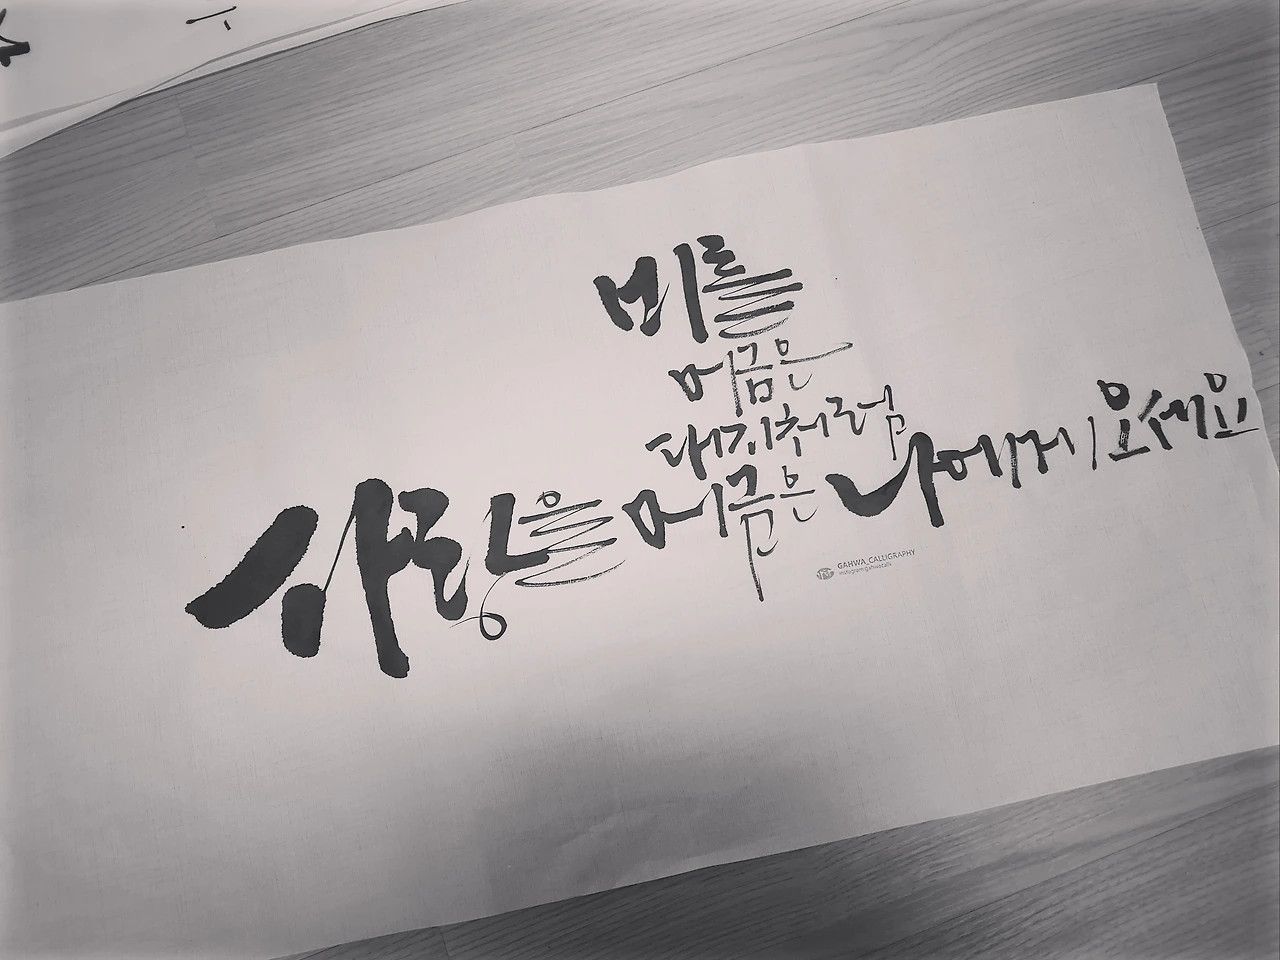 비를
머금은
대지처럼
사랑을 머금은 나에게 오세요
GAHWA_CALLIGRAPHY
instagram:gahwacalli